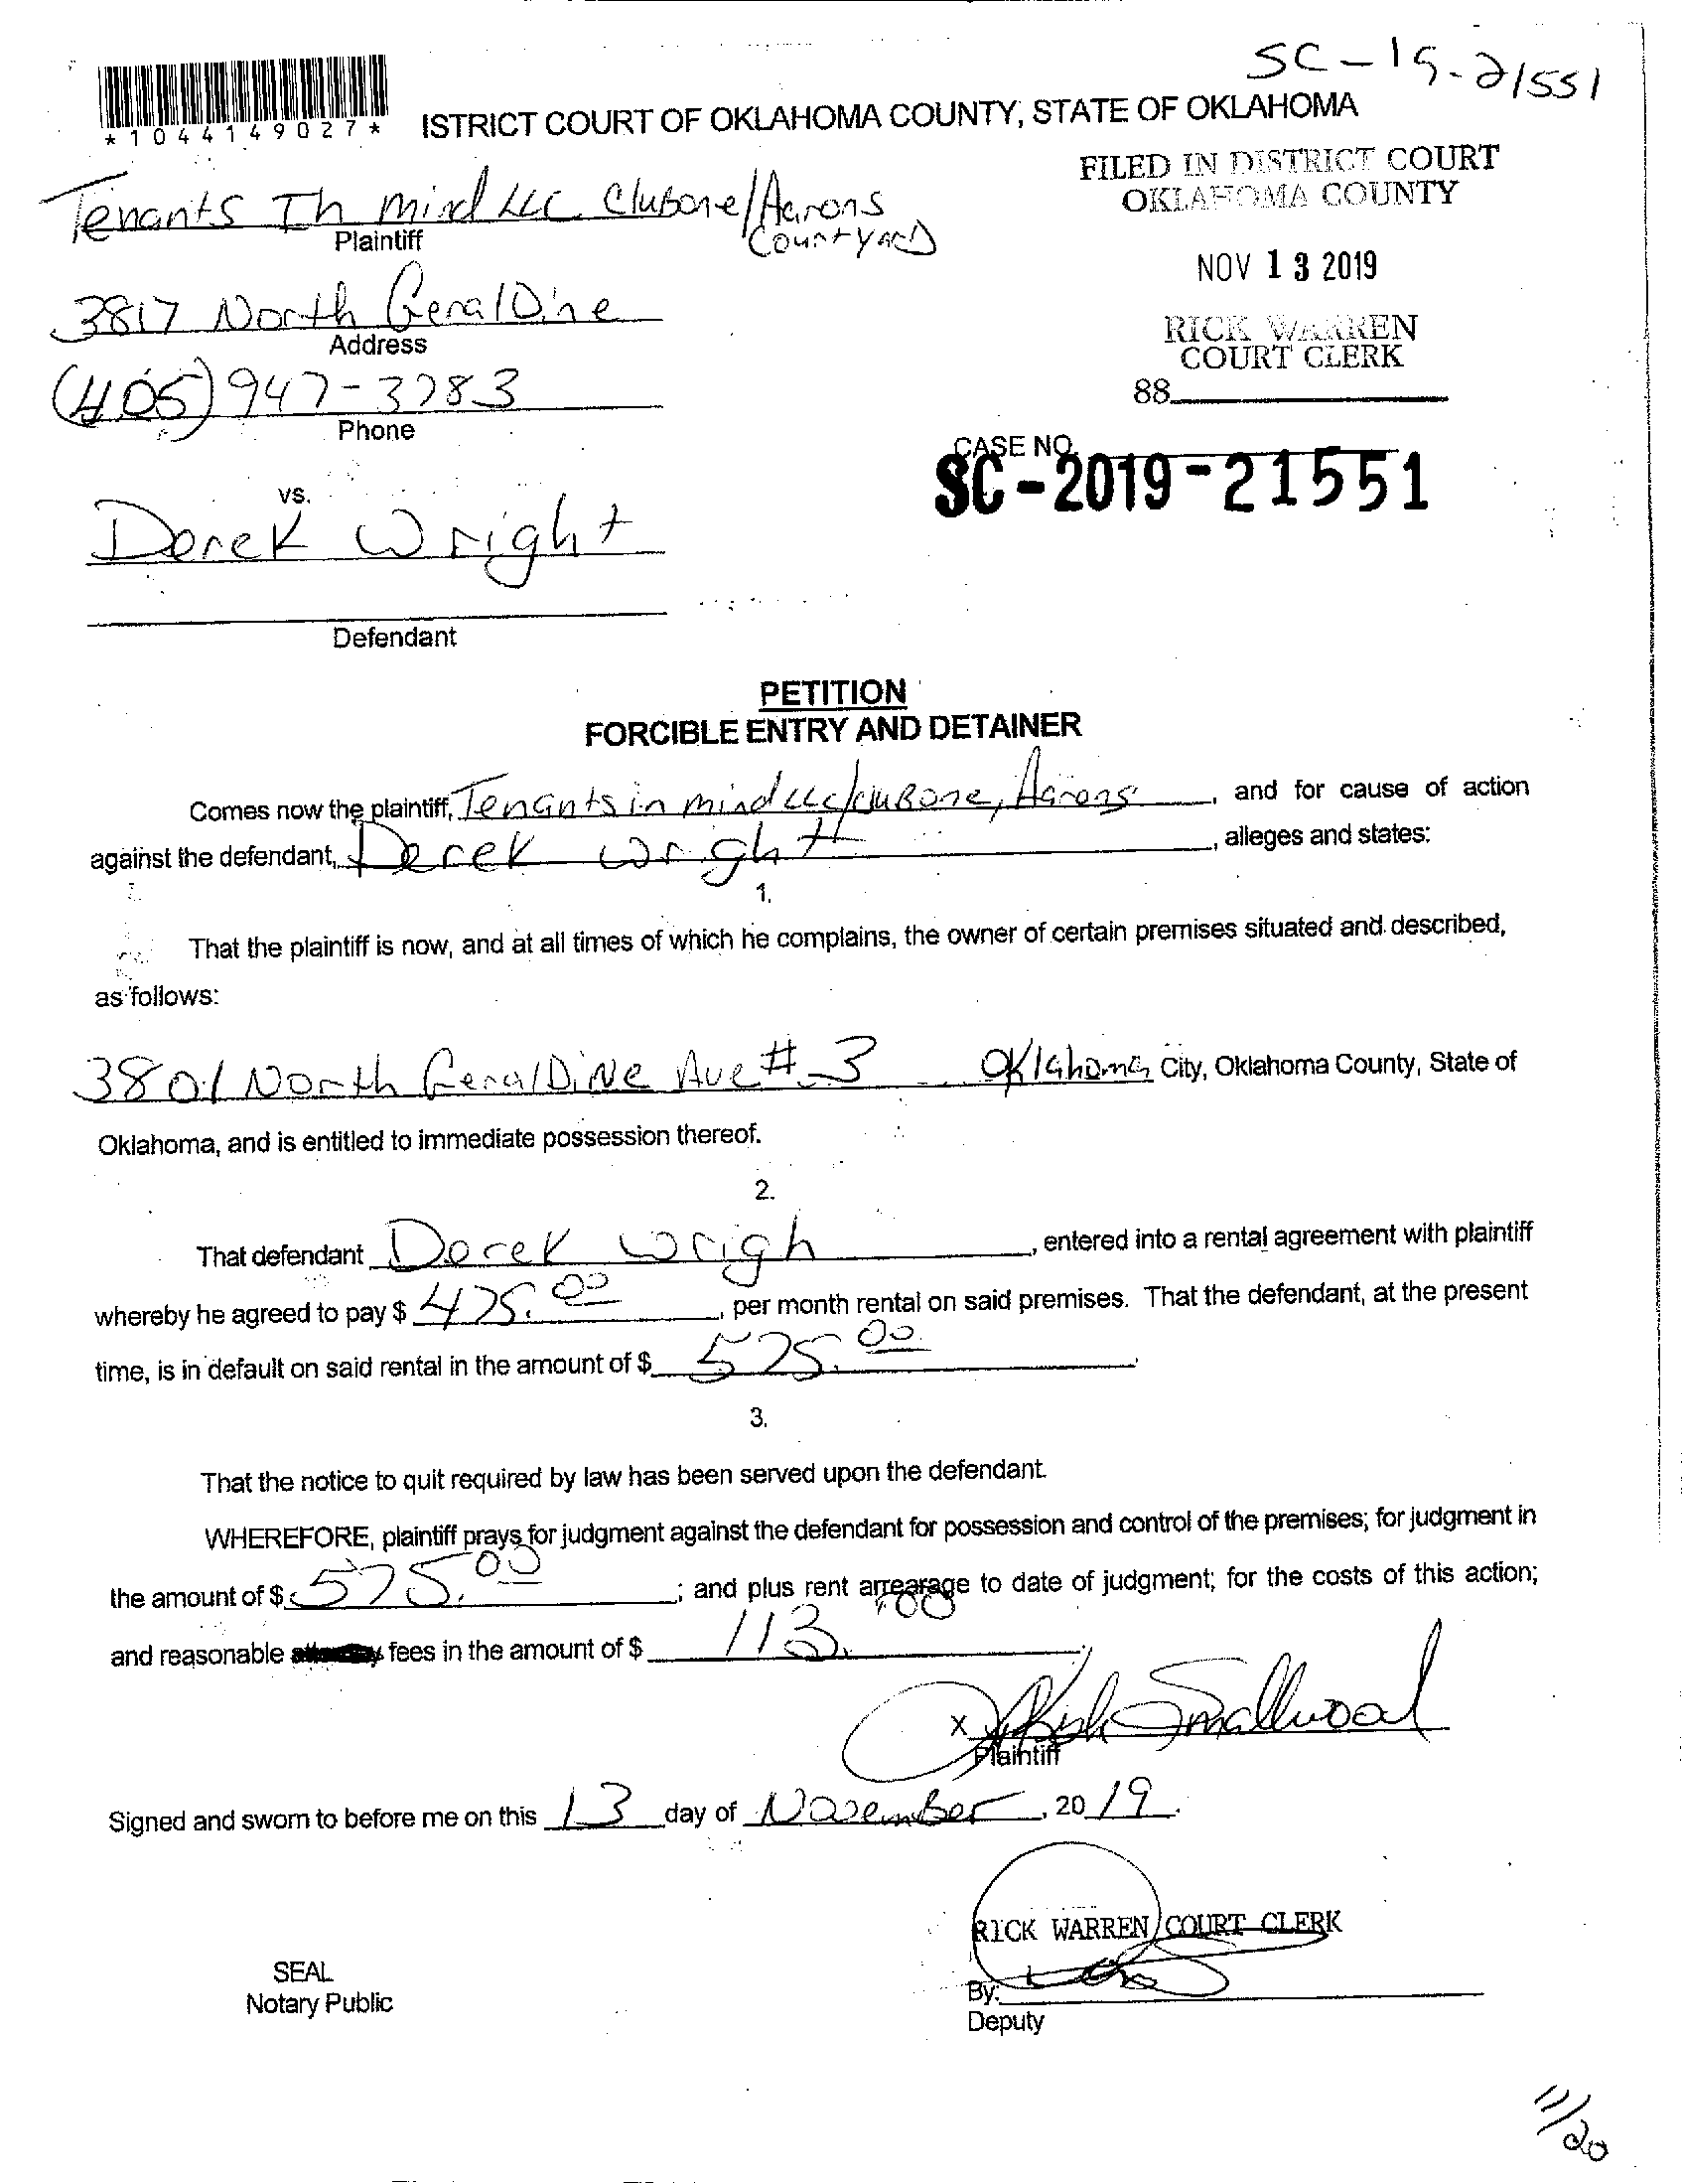 SC-19-21551
*1044149027*
ISTRICT COURT OF OKLAHOMA COUNTY, STATE OF OKLAHOMA
FILED IN DISTRICT COURT
OKLAHOMA COUNTY
Tenants In mind LLC Clubone/Aarons
Courtyard
Plaintiff
NOV 13 2019
3817 North GeralDine
Address
RICK WARREN
COURT CLERK
88
(405) 947-3783
Phone
CASE NO.
SC-2019-21551
vs.
Derek Wright
Defendant
PETITION
FORCIBLE ENTRY AND DETAINER
Comes now the plaintiff, Tenants in mind LLC/cluBone, Aarons, and for cause of action
against the defendant, Derek Wright, alleges and states:
1.
That the plaintiff is now, and at all times of which he complains, the owner of certain premises situated and described,
as follows:
3801 North GeralDiNe Ave # 3 Oklahoma City, Oklahoma County, State of
Oklahoma, and is entitled to immediate possession thereof.
2.
That defendant Derek Wrigh, entered into a rental agreement with plaintiff
whereby he agreed to pay $ 475.00, per month rental on said premises. That the defendant, at the present
time, is in default on said rental in the amount of $ 575.00.
3.
That the notice to quit required by law has been served upon the defendant.
WHEREFORE, plaintiff prays for judgment against the defendant for possession and control of the premises; for judgment in
the amount of $ 575.00; and plus rent arrearage to date of judgment; for the costs of this action;
and reasonable fees in the amount of $ 113.00
x Smallwood
Plaintiff
Signed and sworn to before me on this 13 day of November, 2019.
RICK WARREN COURT CLERK
SEAL
Notary Public
By:
Deputy
11/20